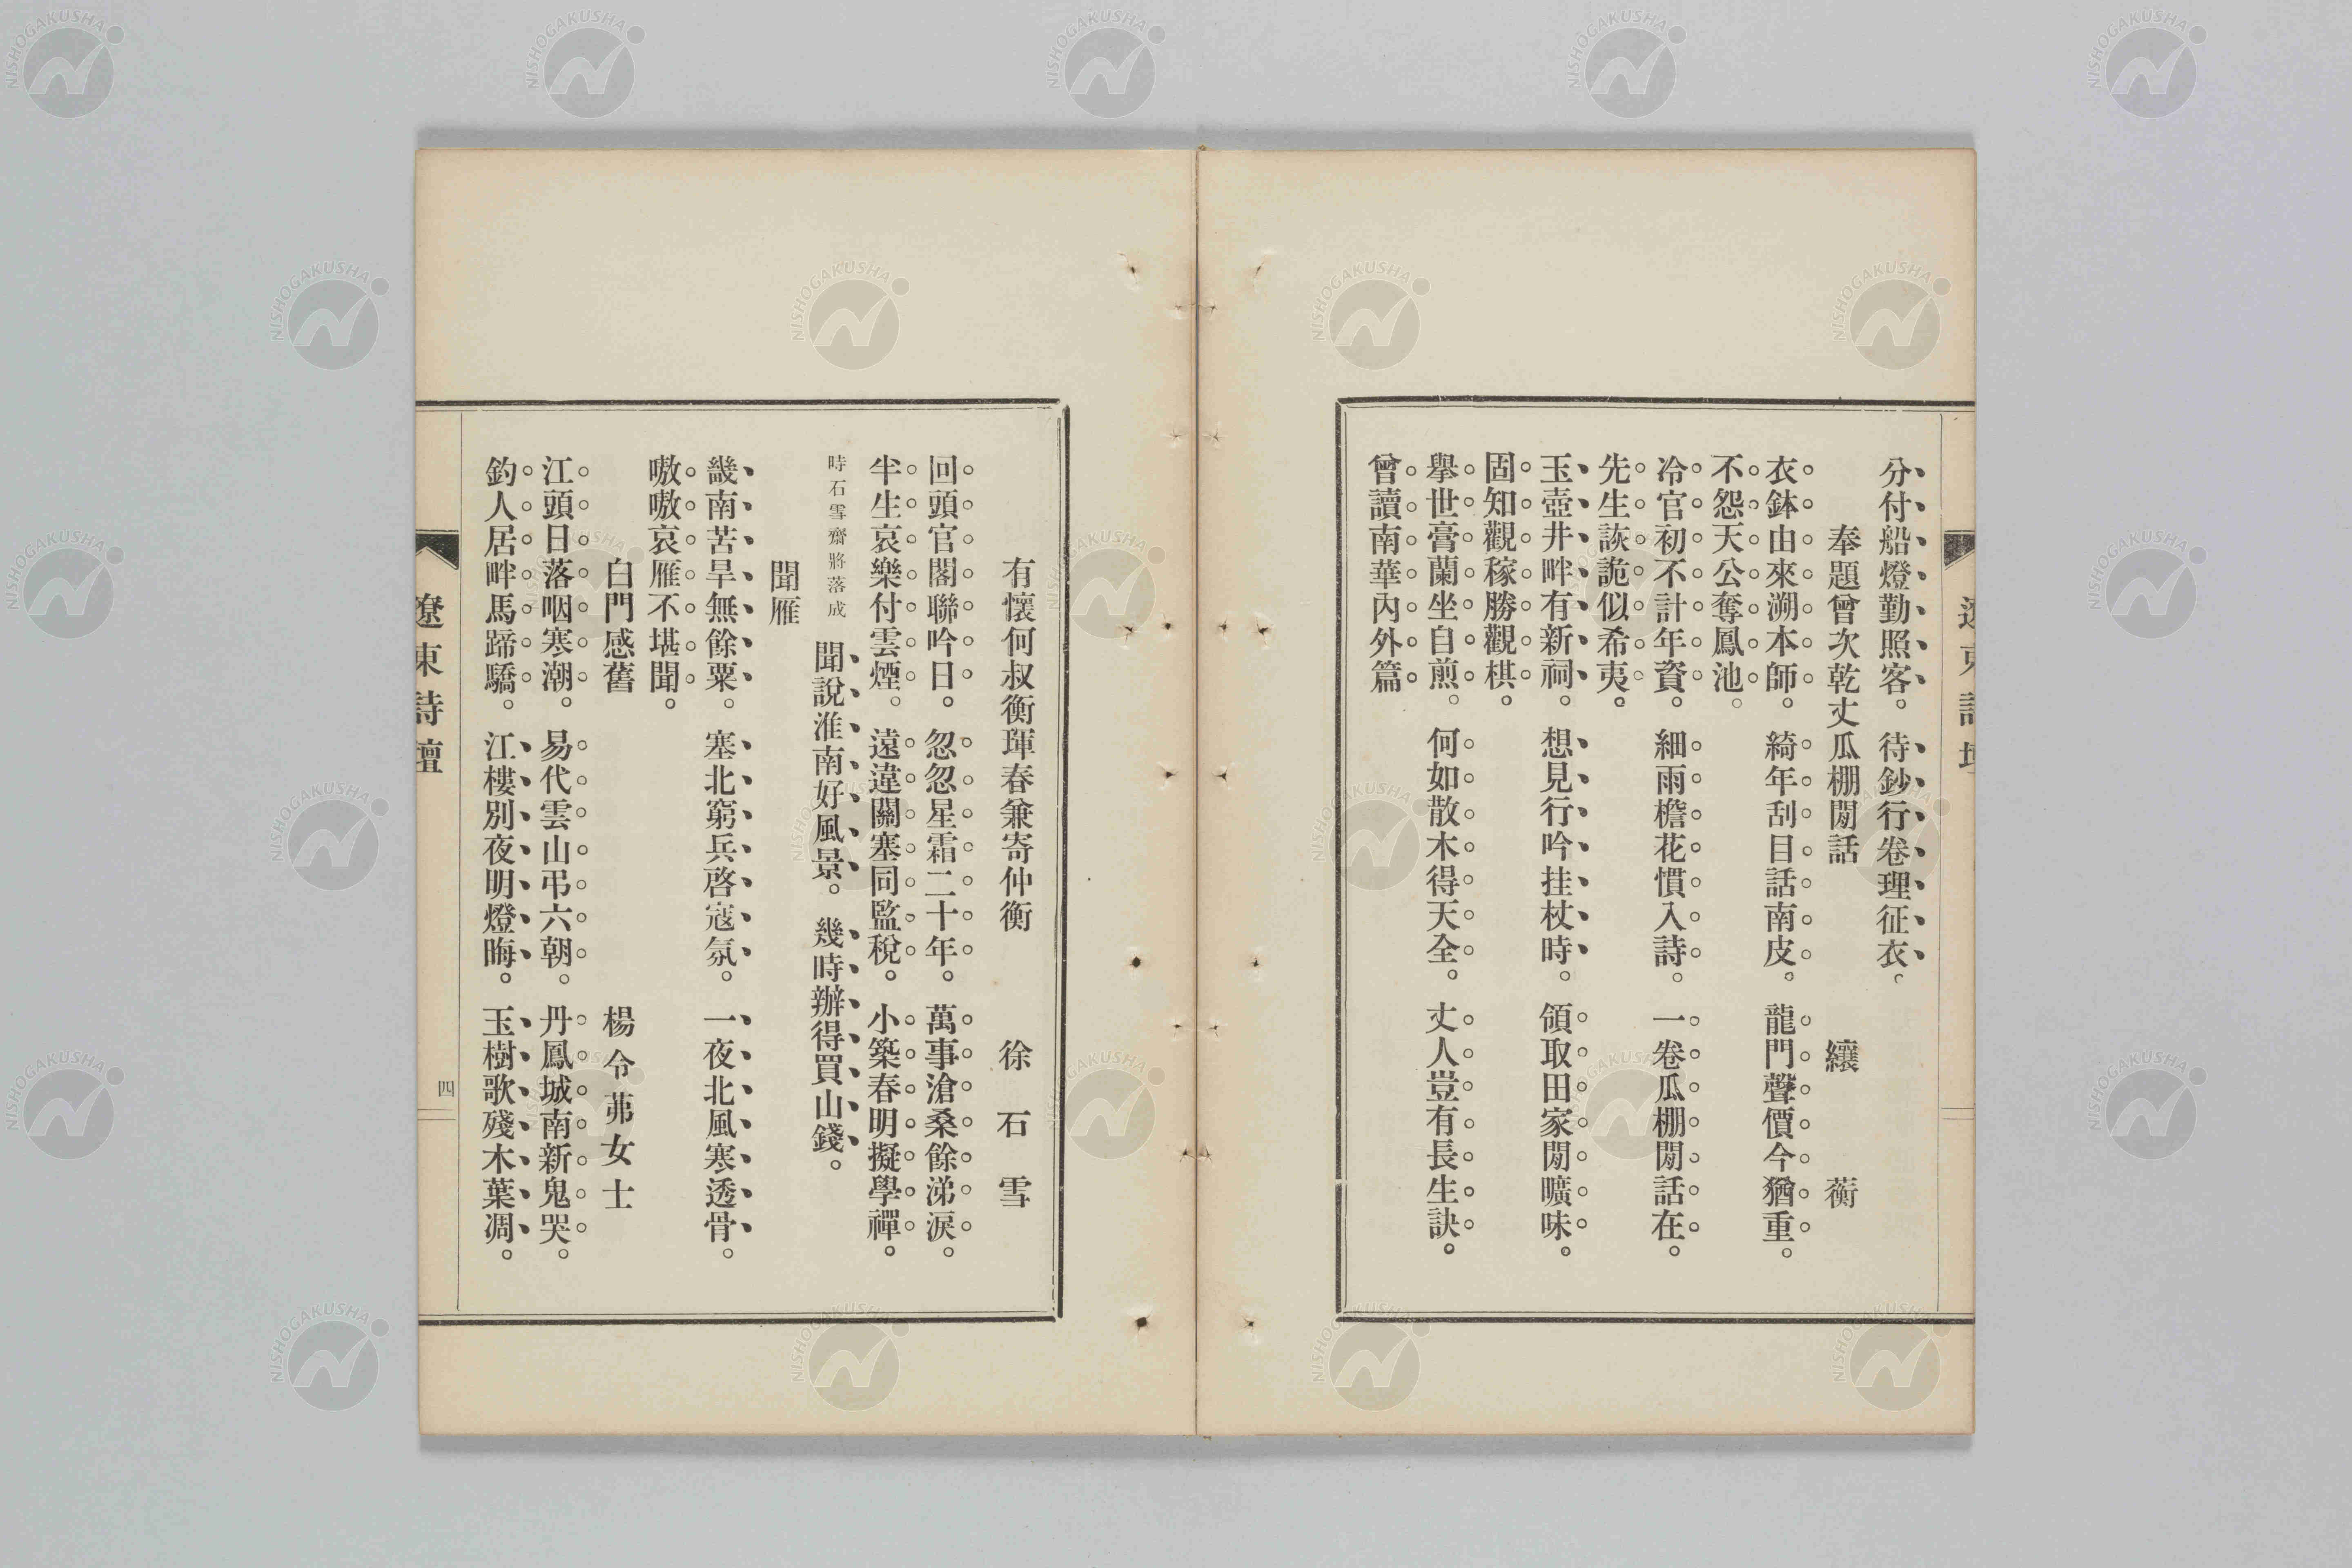 分付船燈勤照客。待鈔行卷理征衣。
奉題曾次乾丈瓜棚閒話　纕蘅
衣鉢由來溯本師。綺年刮目話南皮。龍門聲價今猶重。
不怨天公奪鳳池。
冷官初不計年資。細雨檐花慣入詩。一卷瓜棚閒話在。
先生詼詭似希夷。
玉壺井畔有新祠。想見行吟挂杖時。領取田家閒曠味。
固知觀稼勝觀棋。
擧世膏蘭坐自煎。何如散木得天全。丈人豈有長生訣。
曾讀南華內外篇
有懷何叔衡琿春兼寄仲衡　徐石雪
回頭官閣聯吟日。忽忽星霜二十年。萬事滄桑餘涕淚。
半生哀樂付雲煙。遠違關塞同監稅。小築春明擬學禪。
時石雪齋將落成　聞說淮南好風景。幾時辦得買山錢。
聞雁
畿南苦旱無餘粟。塞北窮兵啓寇氛。一夜北風寒透骨。
嗷嗷哀雁不堪聞。
白門感舊　楊令茀女士
江頭日落咽寒潮。易代雲山弔六朝。丹鳳城南新鬼哭。
釣人居畔馬蹄驕。江樓別夜明燈晦。玉樹歌殘木葉凋。
遼東詩壇
四
NISHOGAKUSHA